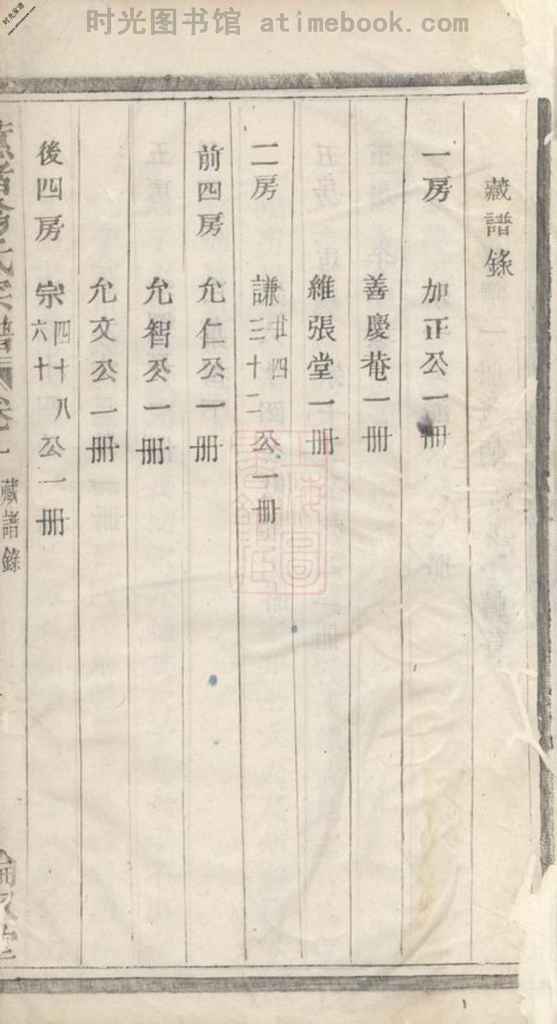 时光图书馆 - atimebook.com
藏譜錄
一房 加正公一冊
善慶菴一冊
維張堂一冊
二房 謙廿四三十二公一冊
前四房 允仁公一冊
允智公一冊
允文公一冊
後四房 宗四十八六十公一冊
氏宗譜 卷一 藏譜錄